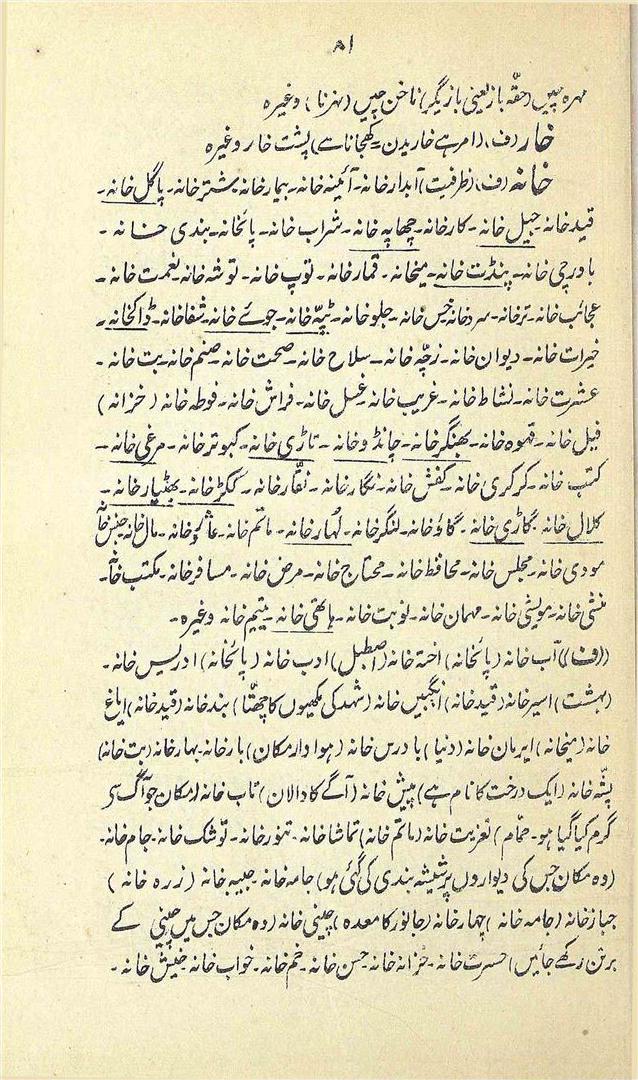 ۸۱
مہرہ چیں (حقّہ باز یعنی بازیگر) ناخن چیں (نہرنا) وغیرہ
خار (ف، (امر ہے خاریدن = کھجانا سے) پشت خار وغیرہ
خانہ (ف، (ظرفیت) آبدار خانہ۔ آئینہ خانہ۔ بیمار خانہ۔ شتر خانہ۔ پاگل خانہ۔
قید خانہ۔ جیل خانہ۔ کارخانہ۔ چھاپہ خانہ۔ شراب خانہ۔ پائخانہ۔ بندی خانہ۔
باورچی خانہ۔ پنڈت خانہ۔ میخانہ۔ قمار خانہ۔ توپ خانہ۔ توشہ خانہ۔ نعمت خانہ۔
عجائب خانہ۔ تر خانہ۔ سرد خانہ۔ خس خانہ۔ جلو خانہ۔ ٹپّہ خانہ۔ جوئے خانہ۔ شفا خانہ۔ ڈاکخانہ۔
خیرات خانہ۔ دیوان خانہ۔ زچّہ خانہ۔ سلاح خانہ۔ صحت خانہ۔ صنم خانہ۔ بت خانہ۔
عشرت خانہ۔ نشاط خانہ۔ غریب خانہ۔ غسل خانہ۔ فراش خانہ۔ فوطہ خانہ (خزانہ)
فیل خانہ۔ قہوہ خانہ۔ بھنگر خانہ۔ چانڈو خانہ۔ تاڑی خانہ۔ کبوتر خانہ۔ مرغی خانہ۔
کتب خانہ۔ کرکری خانہ۔ کفش خانہ۔ نگار خانہ۔ نقّار خانہ۔ ککڑ خانہ۔ بھٹیار خانہ۔
کلال خانہ گاڑی خانہ۔ گاؤ خانہ۔ لنگر خانہ۔ لُہار خانہ۔ ماتم خانہ۔ خانہ۔ مال خانہ۔ جنس خانہ
مودی خانہ۔ مجلس خانہ۔ محافظ خانہ۔ محتاج خانہ۔ مرض خانہ۔ مسافر خانہ۔ مکتب خانہ۔
منشی خانہ۔ مویشی خانہ۔ مہمان خانہ۔ نوبت خانہ۔ ہاتھی خانہ۔ یتیم خانہ وغیرہ۔
((ف)) آب خانہ (پائخانہ) اختہ خانہ (اصطبل) ادب خانہ (پائخانہ) ادریس خانہ۔
(بہشت) اسیر خانہ (قید خانہ) انگبیں خانہ (شہد کی مکھیوں کا چھتّا) بند خانہ (قید خانہ) ایاغ
خانہ (میخانہ) ایرمان خانہ (دنیا) بادرس خانہ (ہوا دار مکان) بار خانہ۔ بہار خانہ (بت خانہ)
پشّہ خانہ (ایک درخت کا نام ہے) پیش خانہ (آگے کا دالان) تاب خانہ (مکان جو آگ سے
گرم کیا گیا ہو۔ حمّام) تعزیت خانہ (ماتم خانہ) تماشا خانہ۔ تنور خانہ۔ توشک خانہ۔ جام خانہ۔
(وہ مکان جس کی دیواروں پر شیشہ بندی کی گئی ہو) جامہ خانہ۔ جیبہ خانہ (زرہ خانہ)
جہاز خانہ (جامہ خانہ) چہار خانہ (جانور کا معدہ) چینی خانہ (وہ مکان جس میں چینی کے
برتن رکھے جائیں) حسرت خانہ۔ خزانہ خانہ۔ حسن خانہ۔ خم خانہ۔ خواب خانہ۔ خیش خانہ۔